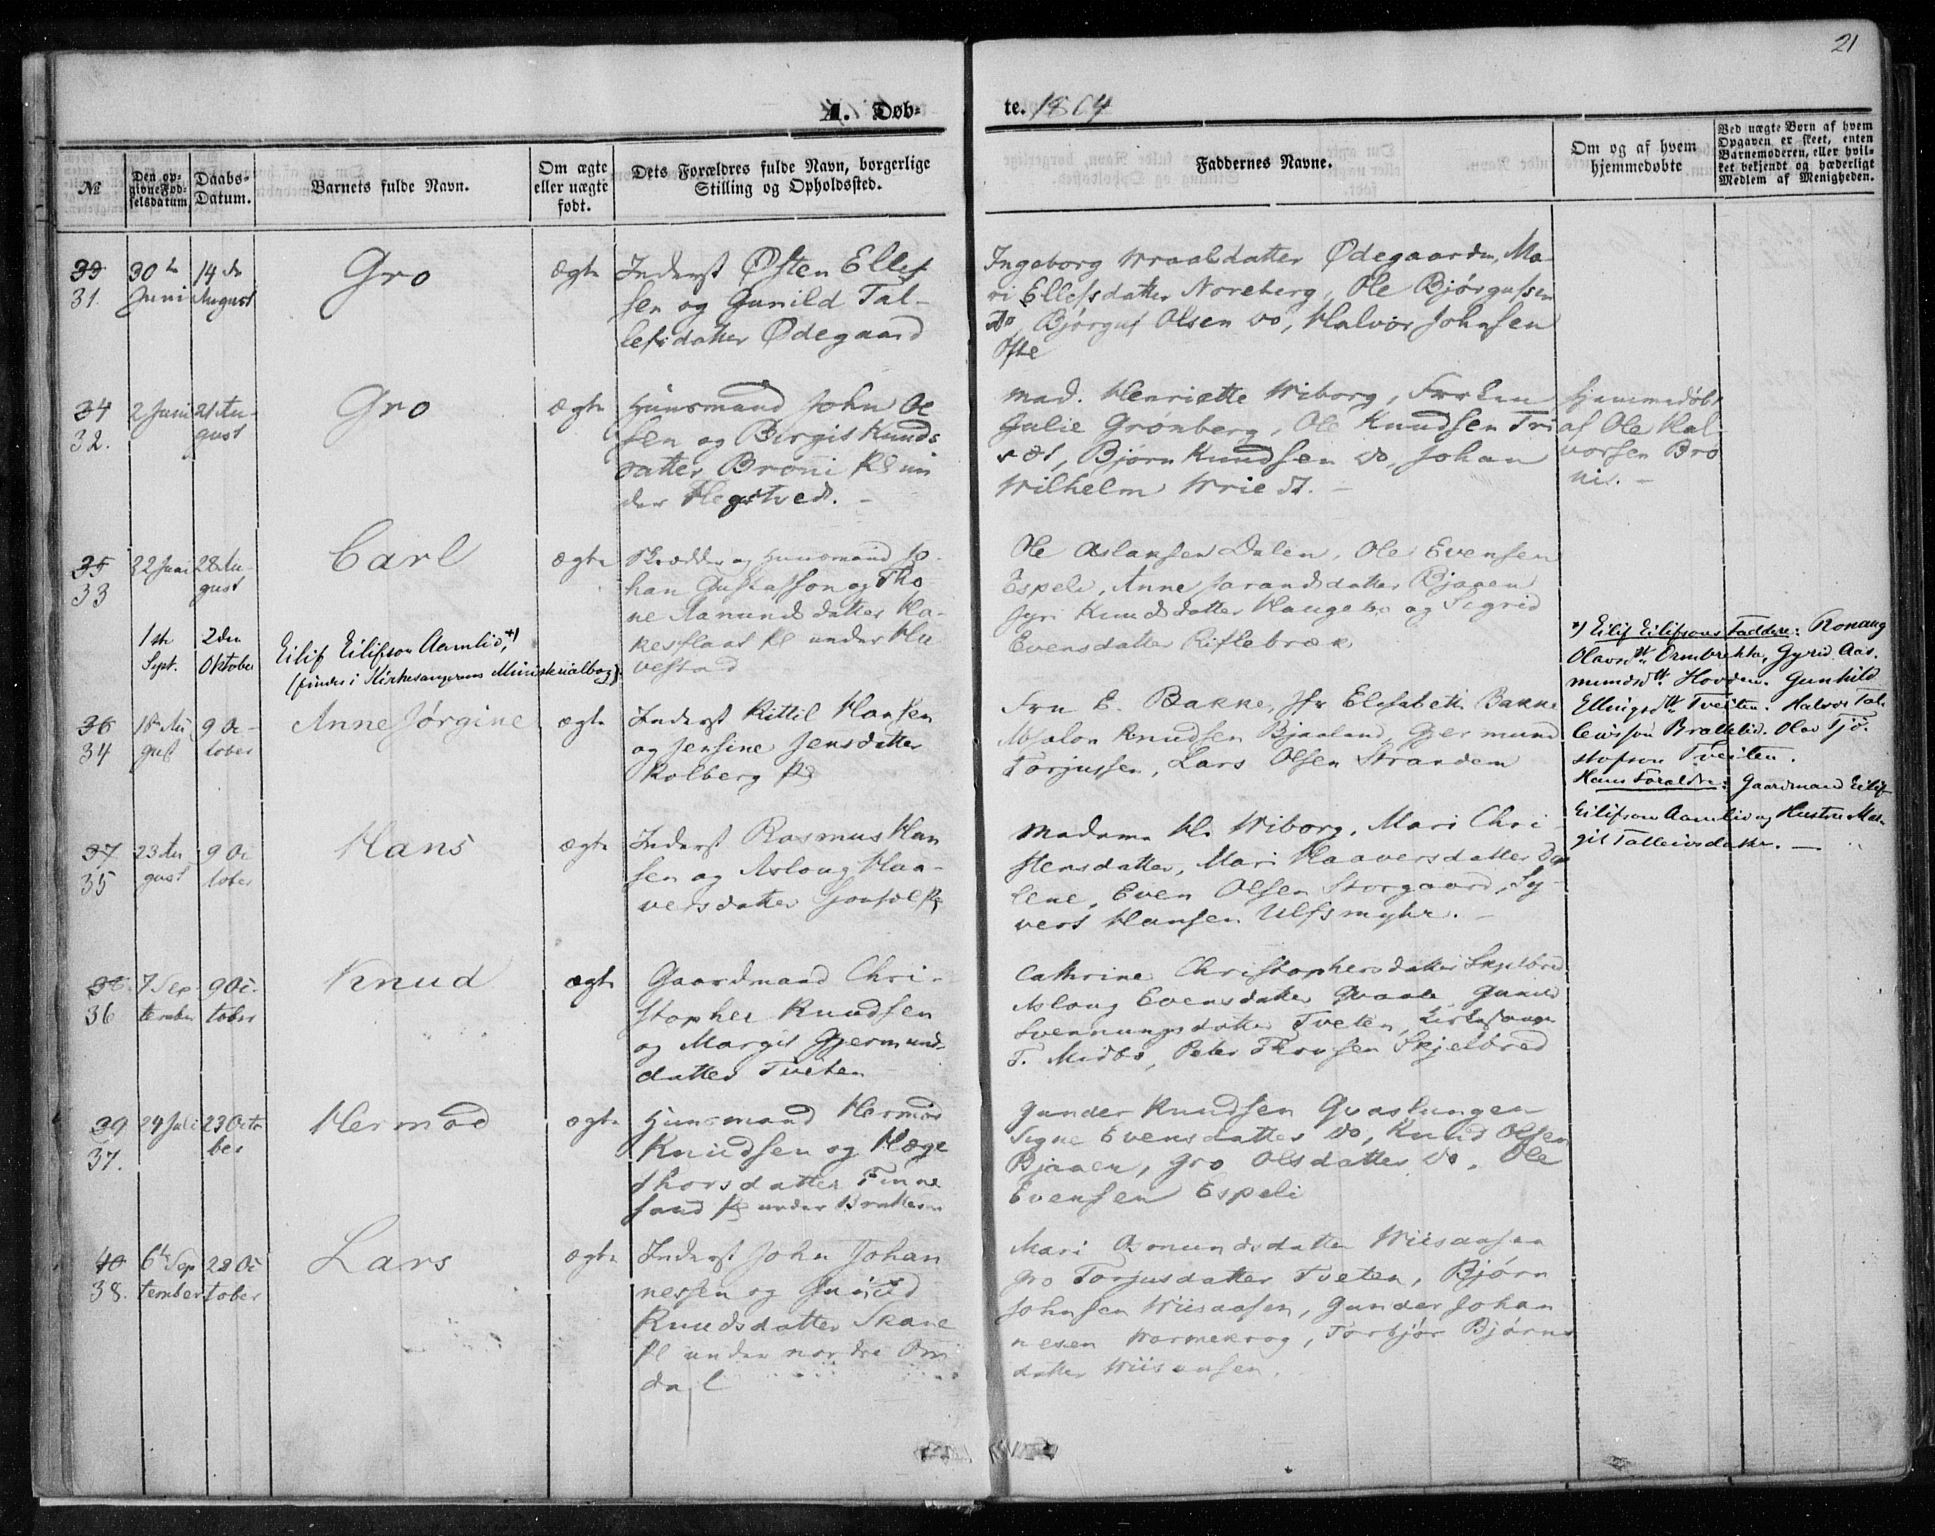 21
A. Døb-
te. 1864
№
Den op-
givne Fød-
selsdatum
Daabs-
Datum.
Barnets fulde Navn.
Om ægte
eller uægte
født.
Dets Forældres fulde Navn, borgerlige
Stilling og Opholdssted.
Faddernes Navne.
Om og af hvem
hjemmedøbte
Ved uægte Børn af hvem
Opgaven er skeet, enten
Barnemoderen, eller hvil-
ket bekjendt og hæderligt
Medlem af Menigheden.
33
31.
30te
Juni
14de
August
Gro
ægte
Inderst Østen Ellef
sen og Gunild Tal-
lefsdatter Ødegaard
Ingeborg Wraalsdatter Ødegaarden, Ma-
ri Ellefsdatter Noreberg, Ole Bjørgufsen
do, Bjørguf Olsen do, Halvor Johnsen
Ofte
34
32.
2 Juni
21 Au-
gust
Gro
ægte
Huusmand John Ol
sen og Birgit Knuds
datter Broni Pl un
der Hegstved. -
Mad. Henriette Wiborg, Frøken
Julie Grønberg, Ole Knudsen Tri
sæt, Bjørn Knudsen do, Johan
Wilhelm Wriedt. -
hjemmedøbt
af Ole Hal-
vorsen Bro
ni. -
35
33
22 Juni
28 Au-
gust
Carl
ægte
Skrædder og Huusmand Jo-
han Gustafson og Tho-
ne Aanundsdatter Ha-
kesflaat Pl under Hu
vestad
Ole Aslaksen Dalen, Ole Evensen
Espeli, Anne Jarandsdatter Bjaaen
Jyri Knudsdatter Haugebø og Sigrid
Evensdatter Riflebræk
1ste
Sept.
2den
Oktober
Eilif Eilifson Aamlid, *)
(findes i Kirkesangerens Ministerialbog).
*) Eilif Eilifsons Faddere: Ronaug
Olavsdtr Ormbrekke, Gyrid Aas-
mundsdtr. Hovden. Gunhild
Ellingsdtr Tveiten. Halvor Tal-
leivson Brattelid. Olav Tjø-
stofson Tveiten.
Hans Forældre: Gaardmand Eilif
Eilifson Aamlid og Hustru Mar-
git Talleivsdatter. -
36
34
18 Au
gust
9 Oc-
tober
Anne Jørgine
ægte
Inderst Kittil Hansen
og Jensine Jensdatter
Kolberg Pl
Fru E. Bakke, Jfr Elisabeth Bakke
Absalon Knudsen Bjaaland, Gjermund
Torjussen, Lars Olsen Stranden
37
35
23 Au
gust
9 Oc
tober
Hans
ægte
Inderst Rasmus Han
sen og Aslaug Haa-
versdatter
Madame H. Wiborg, Mari Chri
stensdatter, Mari Haaversdatter Da
lene, Even Olsen Storgaard, Sy-
vert Hansen Ulfsmyhr. -
38.
36
7 Sep
tember
9 Oc-
tober
Knud
ægte
Gaardmand Chri-
stopher Knudsen
og Margit Gjermunds
datter Tveten
Cathrine Christophersdatter Skjelbred
Aslaug Evensdatter Qvaale, Gunild
Svennungsdatter Tveten, Kirkesanger
T. Midbø, Peter Thorsen Skjelbred
39
37.
24 Juli
23 Octo
ber
Hermod
ægte
Huusmand Hermod
Knudsen og Hæge
Thorsdatter Finne
sand Pl under
Gunder Knudsen Qvaslungen
Signe Evensdatter do, Knud Olsen
Bjaaen, Gro Olsdatter do, Ole
Evensen Espeli
40
38.
6te Sep
tember
23 Oc
tober
Lars
ægte
Inderst John Johan
nessen og Gunild
Knudsdatter Skare
Pl under nordre Om
dal
Mari Osmundsdatter Wiisaasen
Gro Torjusdatter Tveten, Bjørn
Johnsen Wiisaasen, Gunder Johan
nesen Varmekrog, Torbjør Bjørns
datter Wiisaasen.